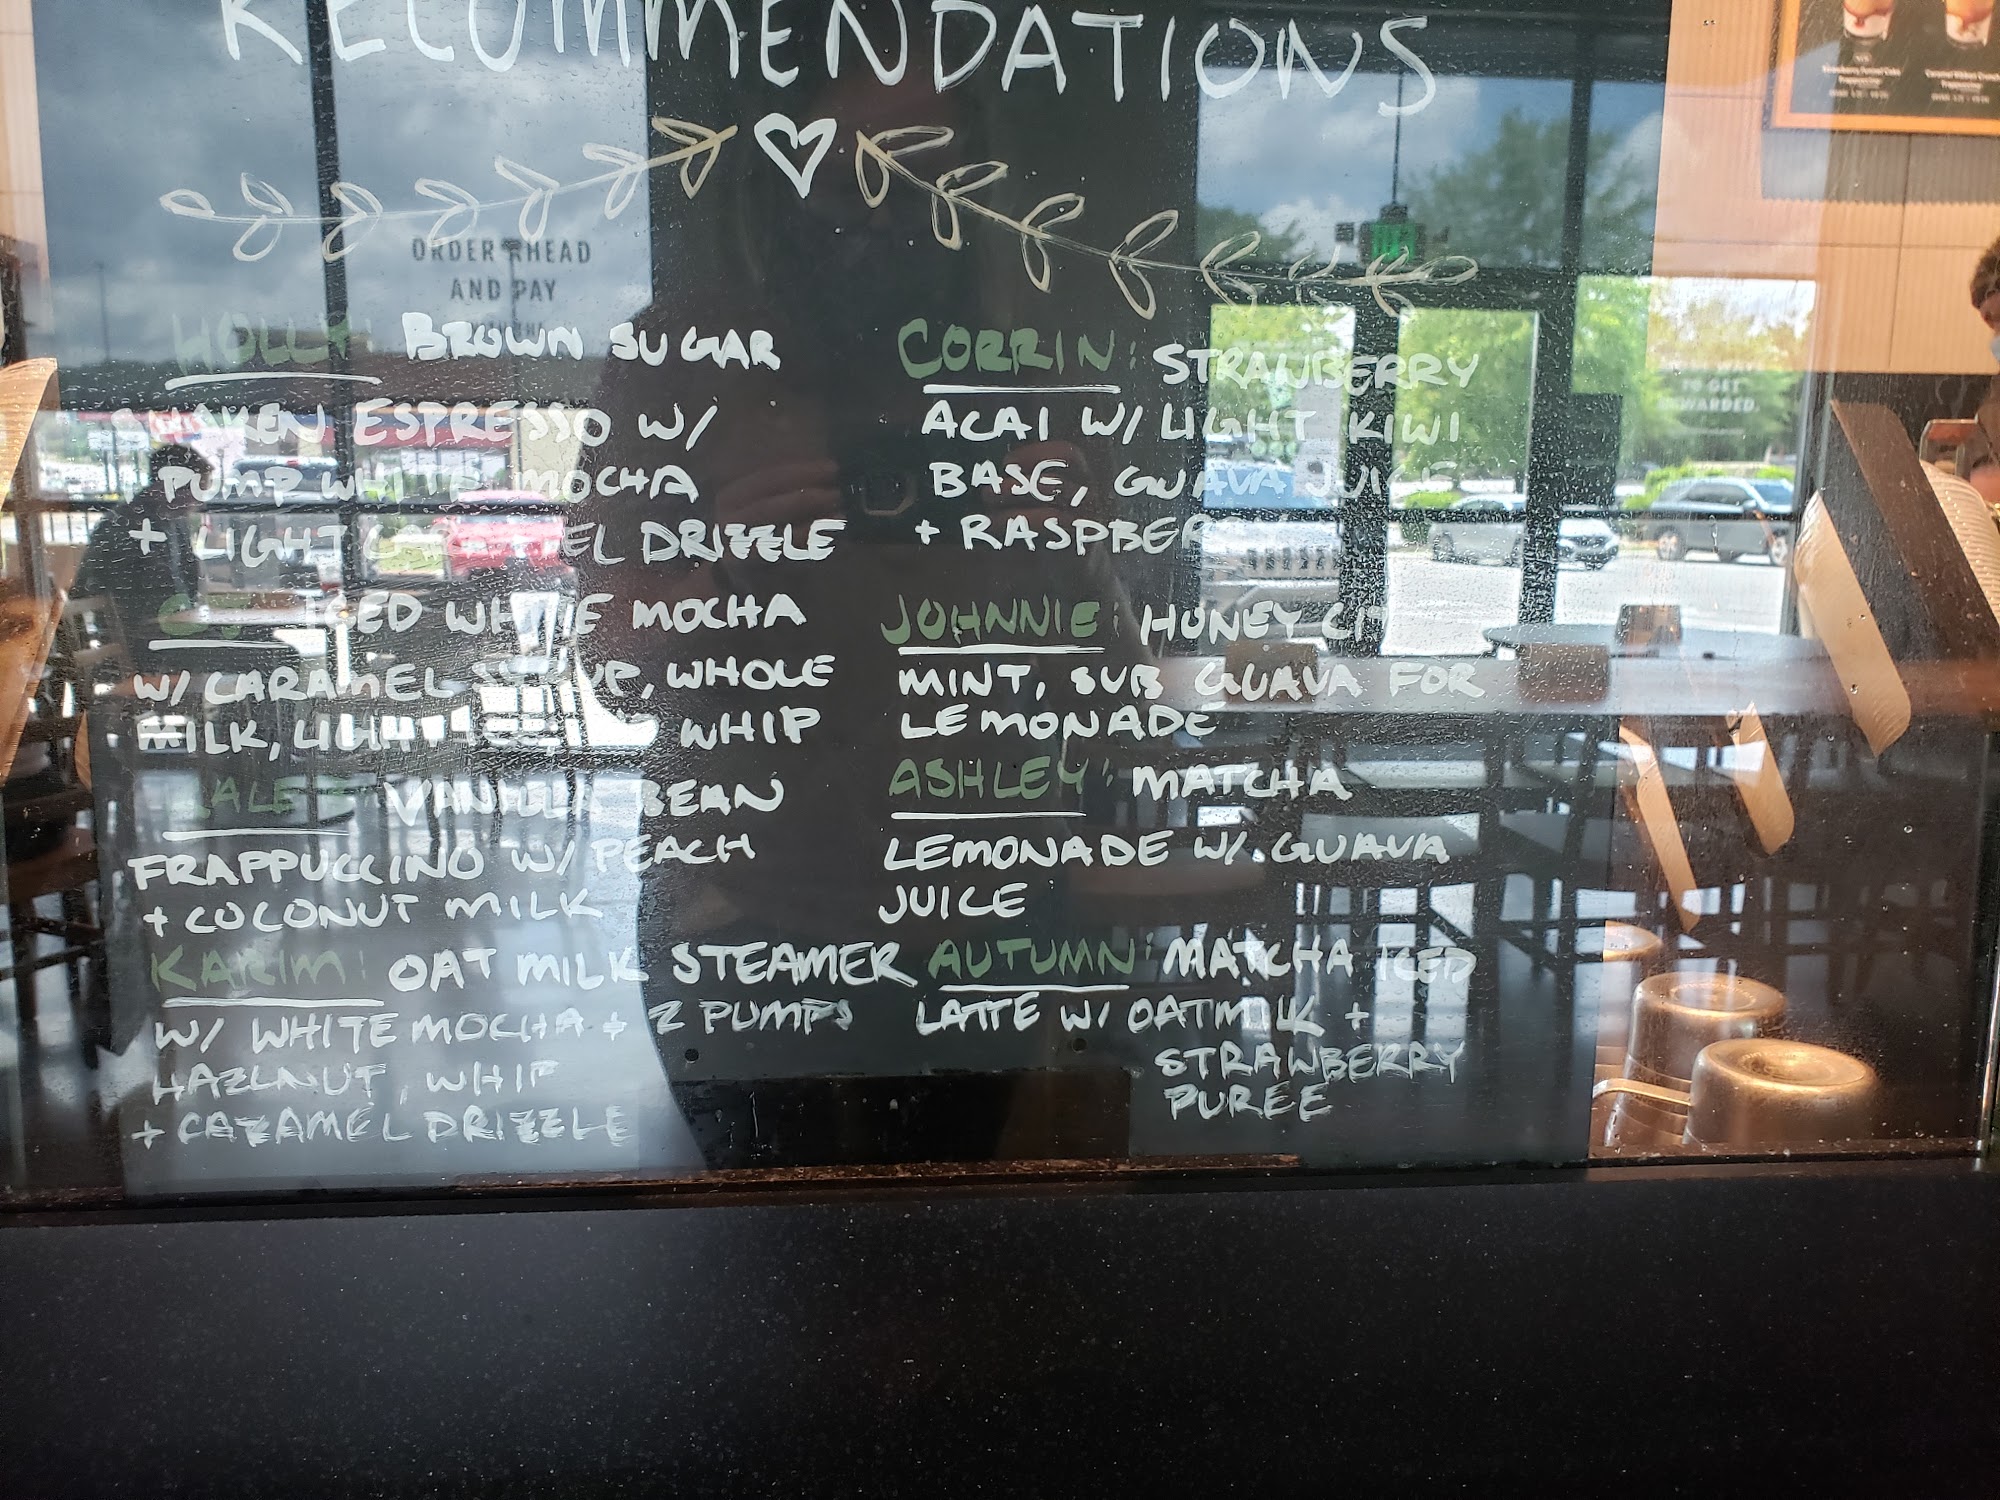 RECOMMENDATIONS
ORDER AHEAD
AND PAY
HOLLY: BROWN SUGAR
SHAKEN ESPRESSO W/
PUMP WHITE MOCHA
+ LIGHT CARAMEL DRIZZLE
ICED WHITE MOCHA
W/ CARAMEL SYRUP, WHOLE
MILK, LIGHT WHIP
VANILLA BEAN
FRAPPUCCINO W/ PEACH
+ COCONUT MILK
KARIM: OAT MILK STEAMER
W/ WHITE MOCHA + 2 PUMPS
HAZLNUT, WHIP
+ CARAMEL DRIZZLE
CORRIN: STRAWBERRY
ACAI W/ LIGHT KIWI
BASE, GUAVA JUICE
+ RASPBER
JOHNNIE: HONEY CIT
MINT, SUB GUAVA FOR
LEMONADE
ASHLEY: MATCHA
LEMONADE W/ GUAVA
JUICE
AUTUMN: MATCHA ICED
LATTE W/ OATMILK +
STRAWBERRY
PUREE
WAYS
TO GET
REWARDED.